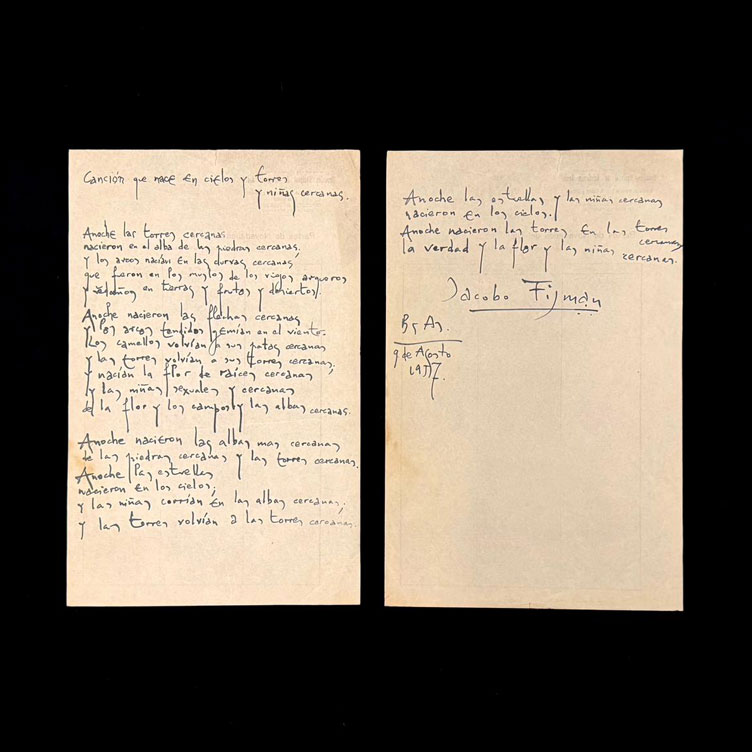 Canción que nace en cielos y torres
y niñas cercanas.
Anoche las torres cercanas
nacieron en el alba de las piedras cercanas,
y los arcos nacían en las curvas cercanas,
que feron en los muslos de los viejos arqueros
y en tierras y frutos y desiertos.
Anoche nacieron las flechas cercanas
y los arcos tendidos gemían en el viento.
Los camellos volvían a sus patas cercanas
y las torres volvían a sus torres cercanas;
y nacían la flor de raíces cercanas
y las niñas sexuales y cercanas
de la flor y los campos y las albas cercanas.
Anoche nacieron las albas mas cercanas
de las piedras cercanas y las torres cercanas.
Anoche las estrellas
nacieron en los cielos;
y las niñas corrían en las albas cercanas;
y las torres volvían a las torres cercanas.
Anoche las estrellas y las niñas cercanas
nacieron en los cielos.
Anoche nacieron las torres en las torres cercanas
la verdad y la flor y las niñas cercanas.
Jacobo Fijman
Bs As.
9 de Agosto
1957.